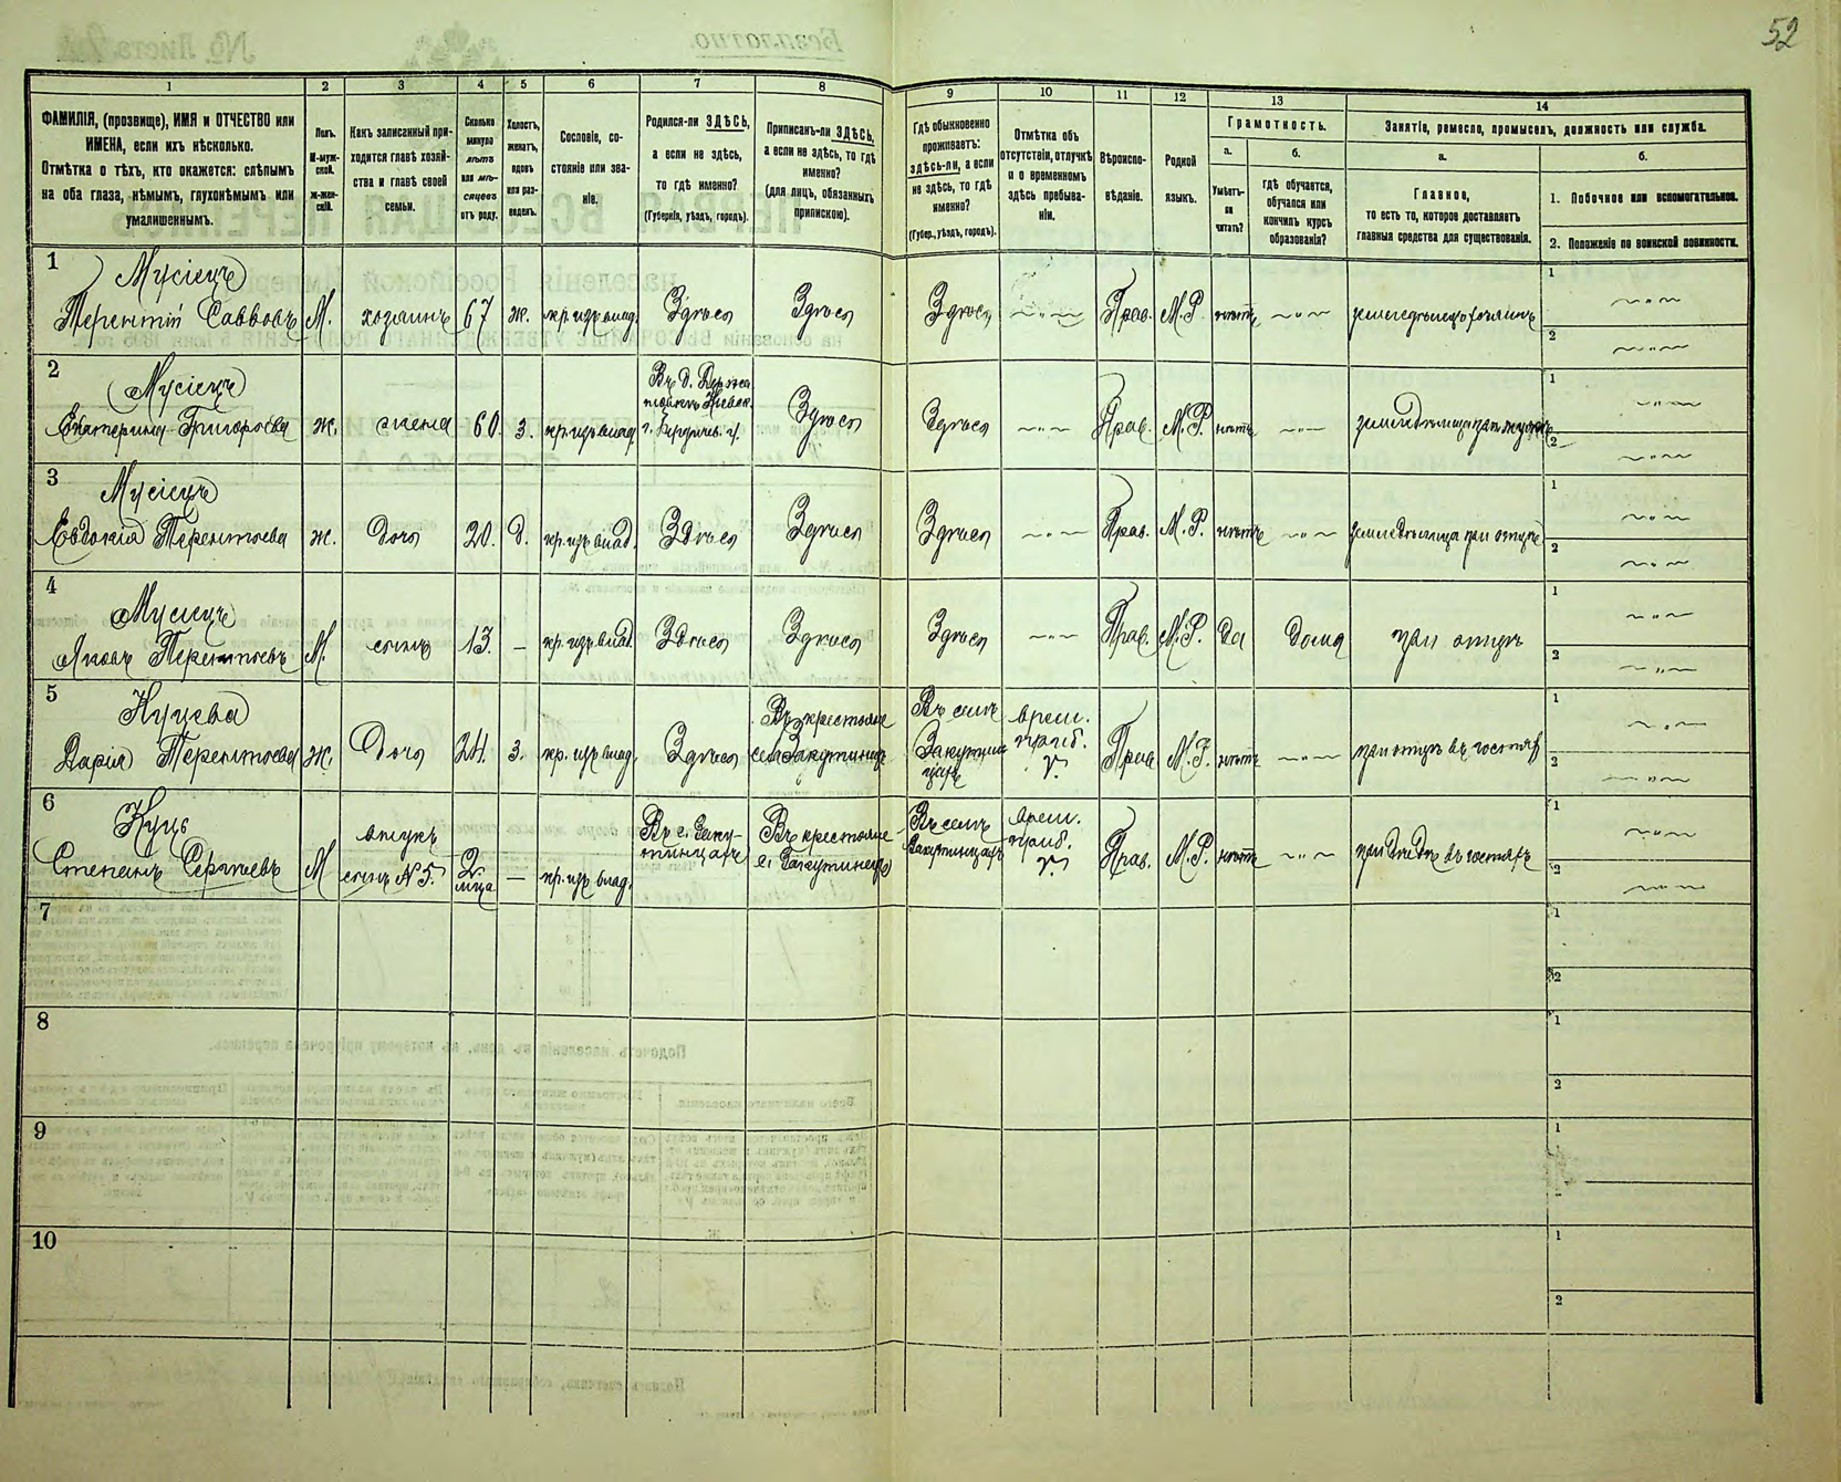 52
1 2 3 4 5 6 7 8 9 10 11 12 13 14
ФАМИЛІЯ, (прозвище), ИМЯ и ОТЧЕСТВО или
ИМЕНА, если ихъ нѣсколько.
Отмѣтка о тѣхъ, кто окажется: слѣпымъ
на оба глаза, нѣмымъ, глухонѣмымъ или
умалишеннымъ.
Полъ.
М-муж-
ской.
ж-жен-
скій.
Какъ записанный при-
ходится главѣ хозяй-
ства и главѣ своей
семьи.
Сколько
минуло
лѣтъ
или мѣ-
сяцевъ
отъ роду.
Холостъ,
женатъ,
вдовъ
или раз-
веденъ.
Сословіе, со-
стояніе или зва-
ніе.
Родился-ли ЗДѢСЬ,
а если не здѣсь,
то гдѣ именно?
(Губернія, уѣздъ, городъ).
Приписанъ-ли ЗДѢСЬ,
а если не здѣсь, то гдѣ
именно?
(для лицъ, обязанныхъ
припискою).
Гдѣ обыкновенно
проживаетъ:
здѣсь-ли, а если
не здѣсь, то гдѣ
именно?
(Губер., уѣздъ, городъ).
Отмѣтка объ
отсутствіи, отлучкѣ
и о временномъ
здѣсь пребыва-
ніи.
Вѣроиспо-
вѣданіе.
Родной
языкъ.
Грамотность.
а.
Умѣетъ-
ли
читать?
б.
гдѣ обучается,
обучался или
кончилъ курсъ
образованія?
Занятіе, ремесло, промыселъ, должность или служба.
а.
Главное,
то есть то, которое доставляетъ
главныя средства для существованія.
б.
1. Побочное или вспомогательное.
2. Положеніе по воинской повинности.
1
Мусіецъ
Терентій Саввовъ М. хозяинъ 67 ж. кр. изъ влад. Здѣсь Здѣсь Здѣсь — " — Прав. М.Р. нѣтъ — " — земледѣлецъ хозяинъ
1 — " —
2 — " —
2
Мусіецъ
Екатерина Григорьева ж. жена 60. з. кр. изъ влад. Въ д.
г. Бердичев. у. Здѣсь Здѣсь — " — Прав. М.Р. нѣтъ — " — земледѣлица при мужѣ
1 — " —
2 — " —
3
Мусіецъ
Евдокія Терентьева ж. дочь 20. д. кр. изъ влад. Здѣсь Здѣсь Здѣсь — " — Прав. М.Р. нѣтъ — " — земледѣлица при отцѣ
1 — " —
2 — " —
4
Мусіецъ
Яковъ Терентьевъ М. сынъ 13. — кр. изъ влад. Здѣсь Здѣсь Здѣсь — " — Прав. М.Р. да дома при отцѣ
1 — " —
2 — " —
5
Куцева
Дарія Терентьева ж. дочь 24. з. кр. изъ влад. Здѣсь Въ крестьяне
Въ селѣ
врем.
приб.
Прав. М.Р. нѣтъ — " — при отцѣ въ гостяхъ
1 — " —
2 — " —
6
Куць
Степанъ Сергѣевъ М внукъ
сынъ №5. 2
мца — кр. изъ влад. Въ с.
Въ крестьяне
Въ селѣ
врем.
приб.
Прав. М.Р. нѣтъ — " — при дѣдѣ въ гостяхъ
1 — " —
2 — " —
7
1
2
8
1
2
9
1
10
1
2